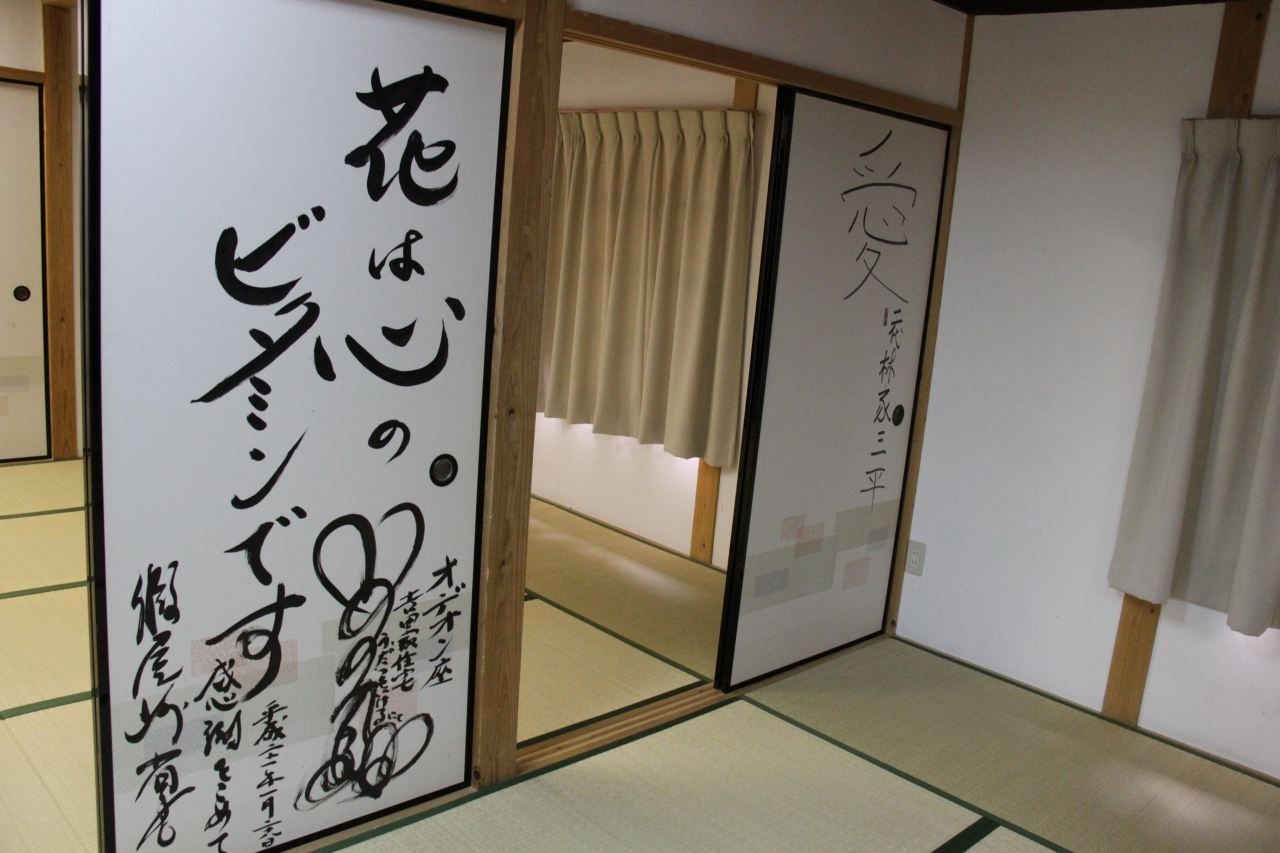 花は心の
ビタミンです
オデオン座
吉田家住宅
平成二十二年一月
感謝をこめて
假屋崎省吾
愛
二代林家三平